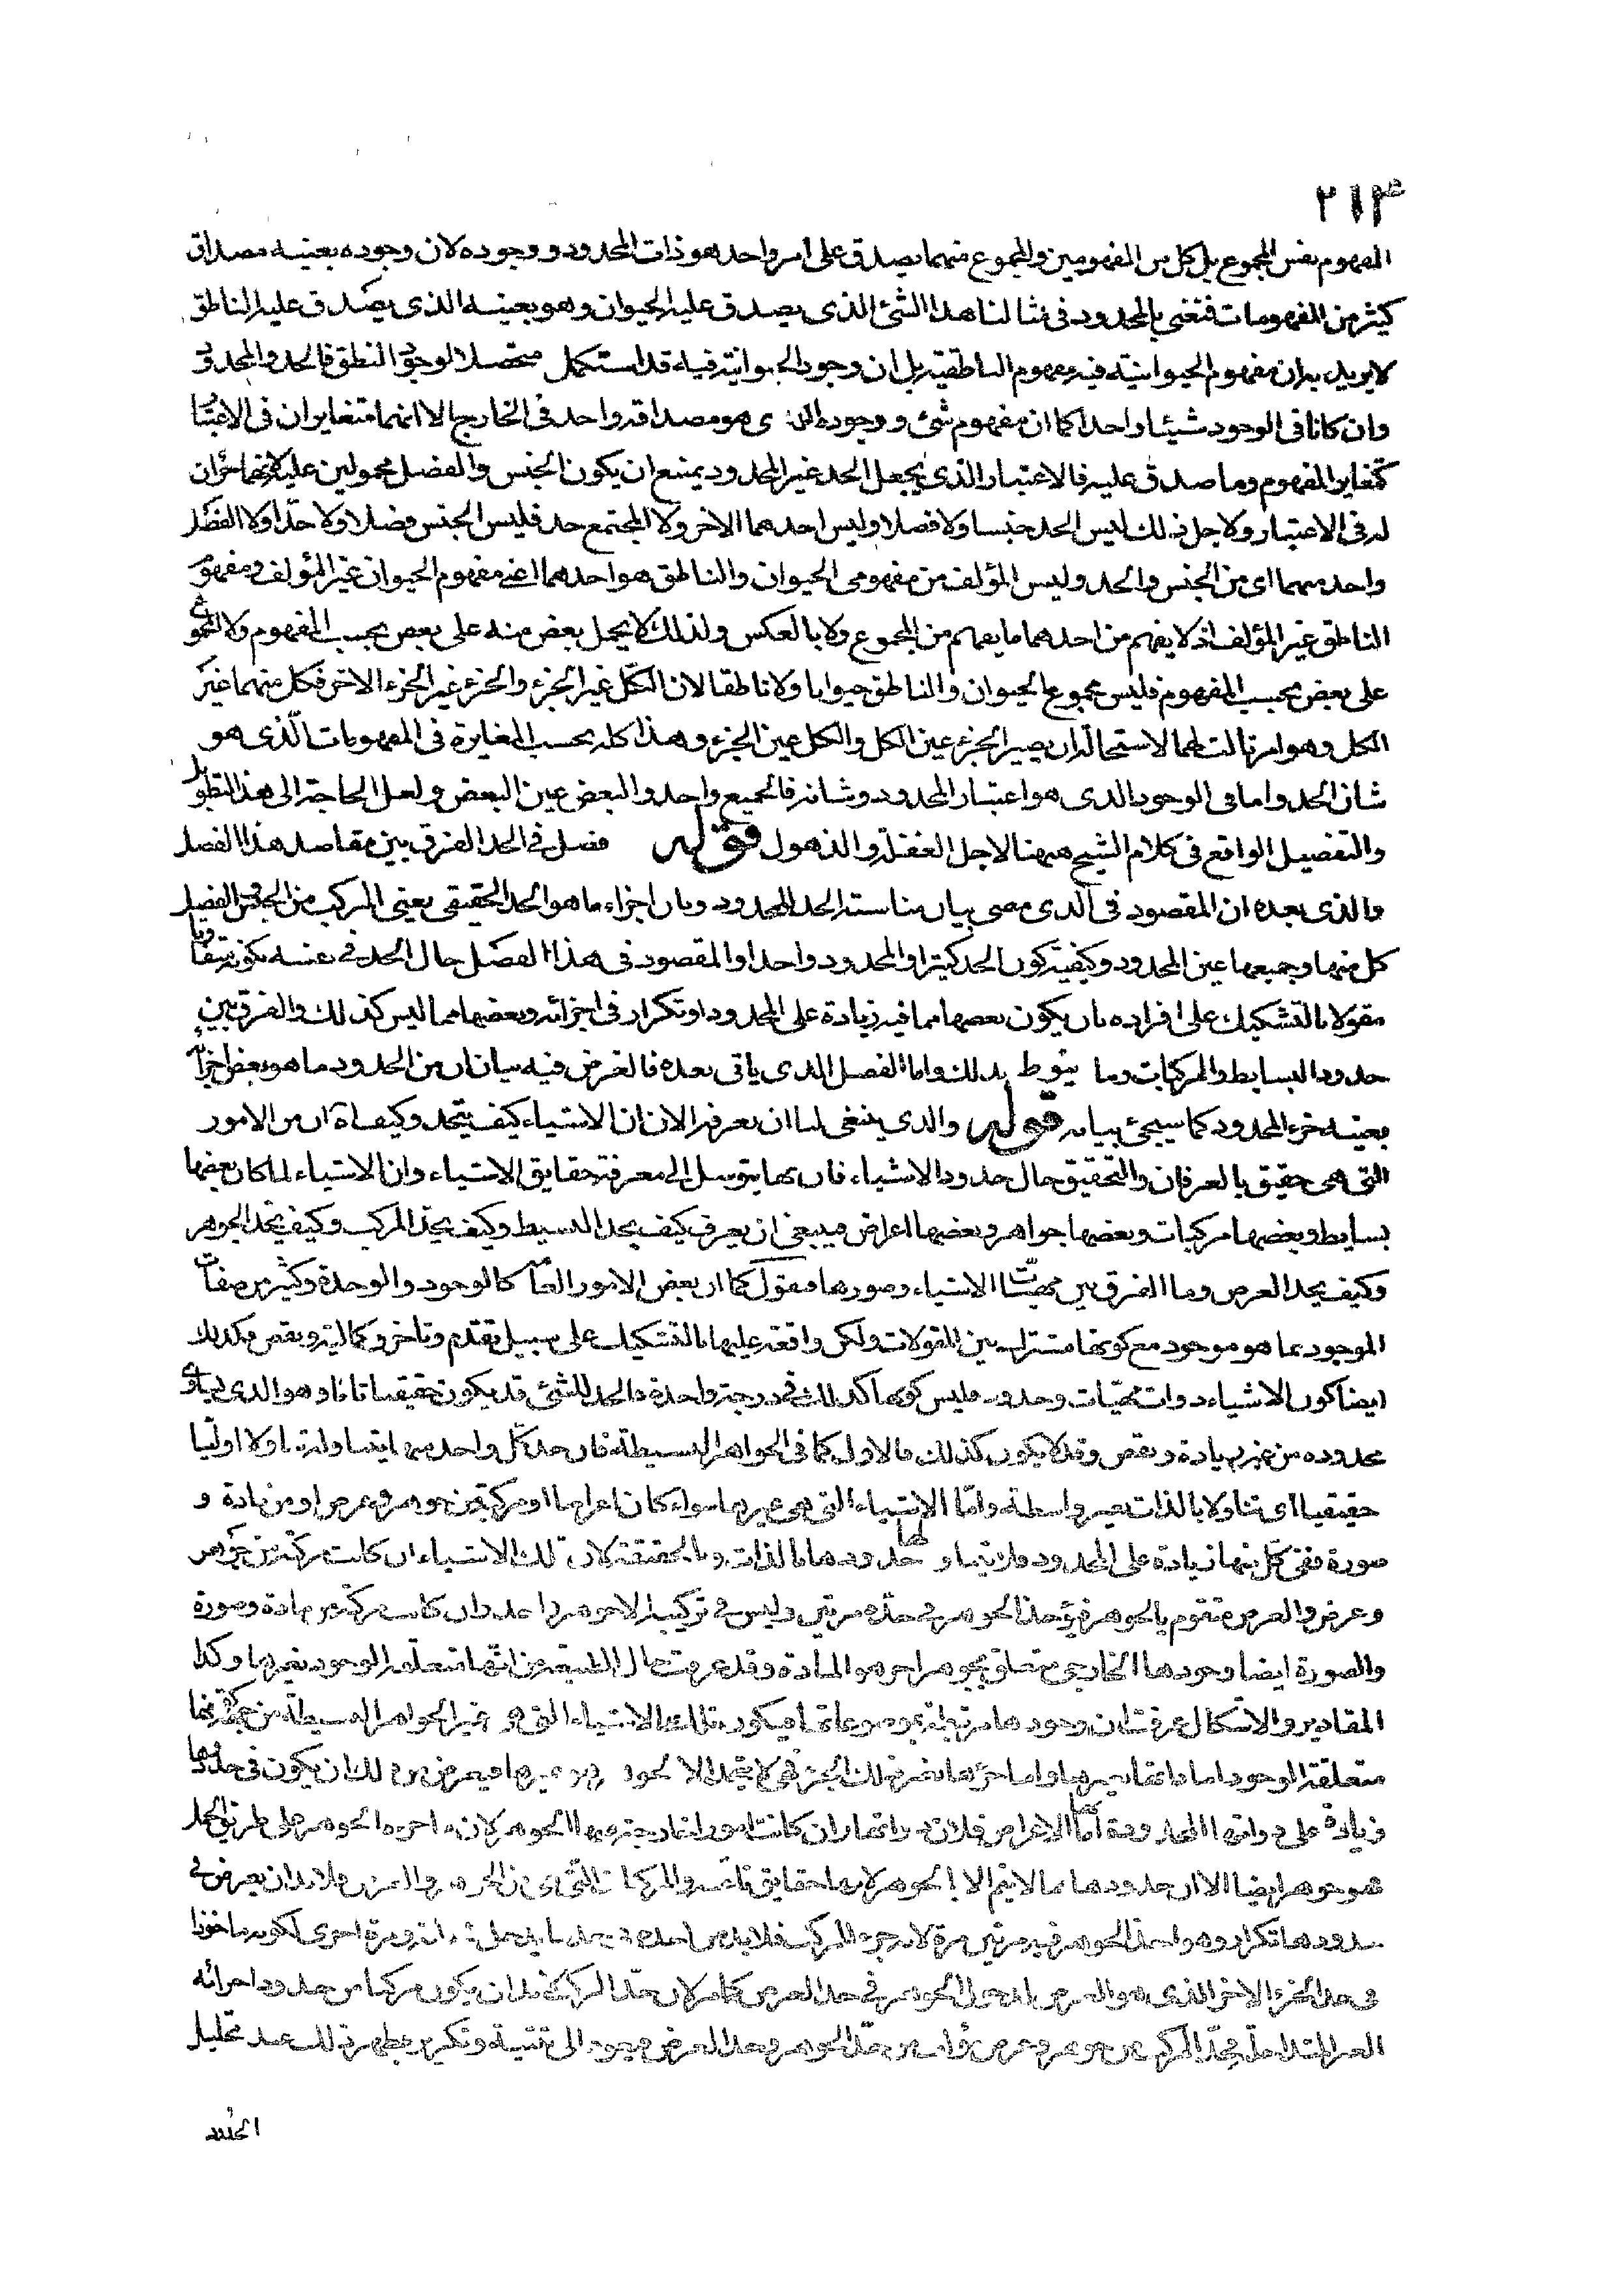 ٢١٣
المفهوم نفس المجموع بل كل من المفهومين والمجموع منهما يصدق على امر واحد هو ذات المحدود ووجوده لان وجوده بعينه مصداق
كثير من المفهومات فنعنى بالمحدود فى مثالنا هذا الشئ الذى يصدق عليه الحيوان وهو بعينه الذى يصدق عليه الناطق
لا يريد به ان مفهوم الحيوانية فيه مفهوم الناطقية بل ان وجود الحيوانية فيه قد استكمل متحصلا لوجود النطق فالحد والمحدود
وان كانا فى الوجود شيئا واحدا كما ان مفهوم شئ ووجوده الذى هو مصداقه واحد فى الخارج الا انهما متغايران فى الاعتبار
كتغاير المفهوم وما صدق عليه فالاعتبار الذى يجعل الحد غير المحدود يمنع ان يكون الجنس والفصل محمولين عليه لانهما جزءان
له فى الاعتبار ولاجل ذلك ليس الحد جنسا ولا فصلا وليس احدهما الاخر ولا المجتمع حد فليس الجنس فصلا ولا حدا ولا الفصل
واحد منهما اى من الجنس والحد وليس المؤلف من مفهومى الحيوان والناطق هو احدهما اعنى مفهوم الحيوان غير المؤلف ومفهوم
الناطق غير المؤلف اذ لا يفهم من احدهما ما يفهم من المجموع ولا بالعكس ولذلك لا يحمل بعض منه على بعض بحسب المفهوم ولا المجموع
على بعض بحسب المفهوم فليس مجموع الحيوان والناطق حيوانا ولا ناطقا لان الكل غير الجزء والجزء غير الجزء الاخر فكل منهما غير
الكل وهو امر ثالث لهما لاستحالة ان يصير الجزء عين الكل والكل عين الجزء وهذا كله بحسب المغايرة فى المفهومات الذى هو
شان الحد واما فى الوجود الذى هو اعتبار المحدود وشانه فالجميع واحد والبعض عين البعض ولعل الحاجة الى هذا التطويل
والتفصيل الواقع فى كلام الشيخ ههنا لاجل الغفلة والذهول قوله فصل فى الحد الفرق بين مقاصد هذا الفصل
والذى بعده ان المقصود فى الذى مضى بيان مناسبة الحد للمحدود وبيان اجزاء ما هو الحد الحقيقى يعنى المركب من الجنس والفصل
كل منها وجميعها عين المحدود وكيفية كون الحد كثيرا والمحدود واحدا والمقصود فى هذا الفصل حال الحد فى نفسه بكونه متفاوتا
مقولا بالتشكيك على افراده بان يكون بعضها مما فيه زيادة على المحدود او تكرار فى اجزائه وبعضها مما ليس كذلك والفرق بين
حدود البسايط والمركبات وما ينوط بذلك واما الفصل الذى ياتى بعده فالغرض فيه بيان ان من الحدود ما هو بعض اجزائه
بعينه جزء المحدود كما سيجئ بيانه قوله والذى ينبغى لنا ان نعرفه الان ان الاشياء كيف يتحد وكيف اه ان من الامور
التى هى حقيق بالعرفان والتحقيق حال حدود الاشياء فان بها يتوسل الى معرفة حقايق الاشياء وان الاشياء لما كان بعضها
بسايط وبعضها مركبات وبعضها جواهر وبعضها اعراض فينبغى ان يعرف كيف يحد البسيط وكيف يحد المركب وكيف يحد الجوهر
وكيف يحد العرض وما الفرق بين مهيات الاشياء وصورها فنقول كما ان بعض الامور العامة كالوجود والوحدة وكثير من صفات
الموجود بما هو موجود مع كونها مشتركة بين المقولات ولكن واقعة عليها بالتشكيك على سبيل تقدم وتاخر وكمالية ونقص فكذلك
ايضا كون الاشياء ذوات مهيات وحدود فليس كونها كذلك فى درجة واحدة فالحد للشئ قد يكون حقيقيا تاما وهو الذى يساوى
محدوده من غير زيادة ونقص وقد لا يكون كذلك فالاول كما فى الجواهر البسيطة فان حد كل واحد منها ايضا وله تناولا اوليا
حقيقيا اى تناولا بالذات بغير واسطة واما الاشياء التى هى غيرها سواء كان اعراضا او مركبة من جوهر وعرض او من مادة و
صورة ففى كل منها زيادة على المحدود فلا يتساوى لها حدودها بالذات وبالحقيقة لان تلك الاشياء ان كانت مركبة من جوهر
وعرض والعرض متقوم بالجوهر فيؤخذ الجوهر فى حده مرتين وليس فى تركيبه الا جوهر واحد وان كانت مركبة من مادة وصورة
والصورة ايضا وجودها الخارجى متعلق بجوهر اخر هو المادة وقد عرفت حال الطبيعة من انها متعلقة الوجود بغيرها وكذا
المقادير والاشكال عرفت ان وجودها مرتبطة بموضوعاتها فيكون تلك الاشياء التى هو غير الجواهر البسيطة من
متعلقة الوجود اما ذاتها بغيرها واما جزؤها
زيادة على ذواتها المحدودة اما الاعراض فلان ذواتها وان كانت امورا خارجة عنها الجوهر لان اجزاء الجوهر على طريق الحمل
هو جوهر ايضا الا ان حدودها مما لا يتم الا بالجوهر لانها حقايق ناقصة والمركبات التى من الجوهر والعرض فلا بد ان يعرض فى
حدودها تكرار وهو اخذ الجوهر فيه مرتين مرة لانه جزء المركب فلا بد من اخذه فى حده ومرة اخرى لكونه ماخوذا
فى حد الجزء الاخر الذى هو العرض لدخول الجوهر فى حد العرض كما مر لان حد المركب لا بد ان يكون مركبا من حدود اجزائه
فحد المركب من جوهر وعرض حد الجوهر وحد العرض فيعود الى تثنية وتكرير يظهر ذلك عند تحليل